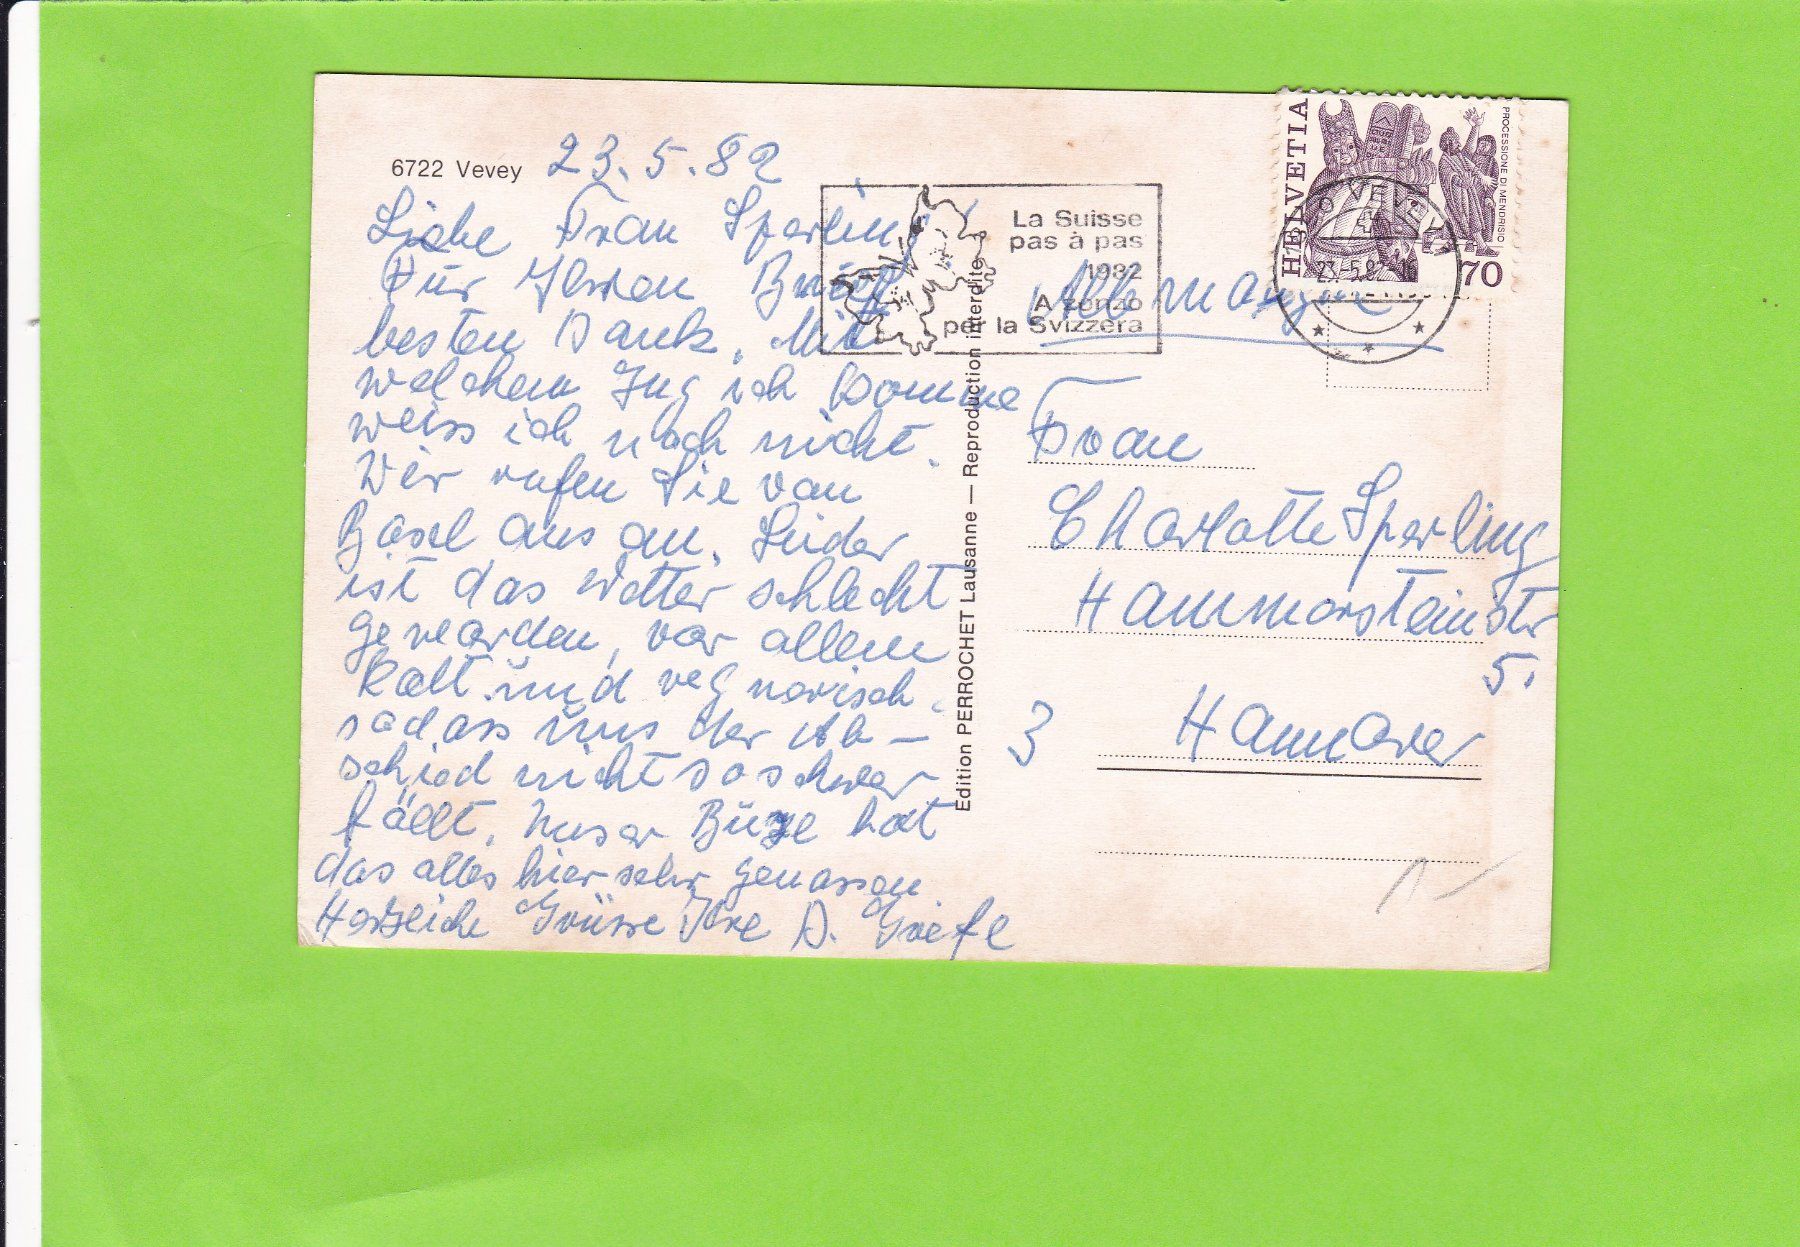 6722 Vevey 23.5.82
Liebe Frau Sperling!
Für Ihren Brief
besten Dank. Mit
welchem Zug ich komme
weiss ich noch nicht.
Wir rufen Sie von
Basel aus an. Leider
ist das Wetter schlecht
geworden, vor allem
kalt und regnerisch,
sodass uns der Ab-
schied nicht so schwer
fällt. Unser hat
das alles hier sehr genossen
Herzliche Grüsse Ihre D. Griefe
Edition PERROCHET Lausanne — Reproduction interdite
La Suisse
pas à pas
1982
A zonzo
per la Svizzera
HELVETIA
PROCESSIONE DI MENDRISIO
70
VEVEY
23.-5.82-
Allemagne
Frau
Charlotte Sperling
Hammersteinstr
5.
3 Hannover